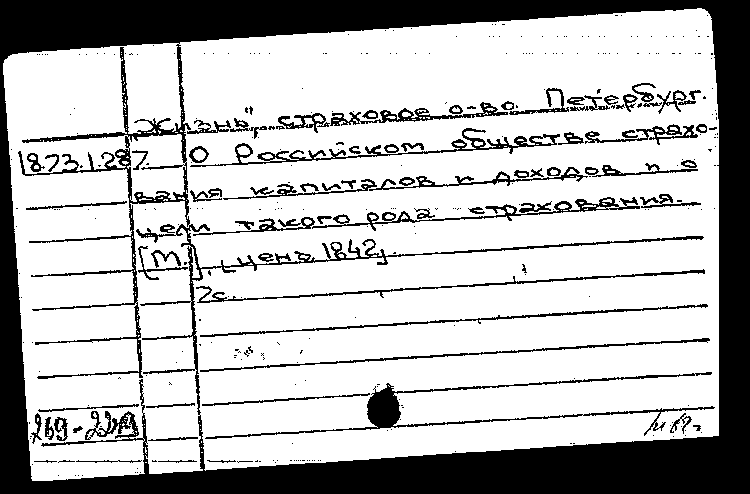 „Жизнь", страховое о-во. Петербург.
18.73.1.287. О Российском обществе страхо-
вания капиталов и доходов и о
цели такого рода страхования.
[М.], [ценз. 1842].
2с.
269-